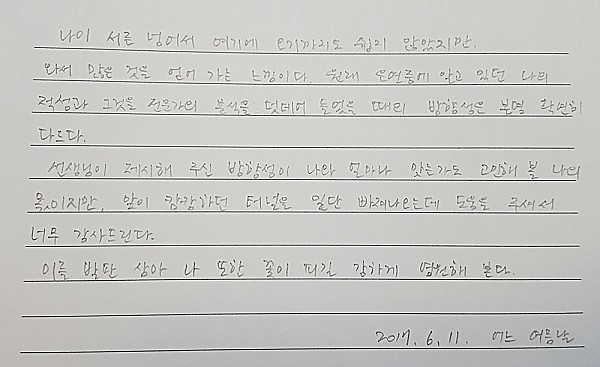 나이 서른 넘어서 여기에 오기까지도 쉽지 않았지만.
와서 많은 것을 얻어 가는 느낌이다. 원래 은연중에 알고 있던 나의
적성과 그것을 전문가의 분석을 덧대어 들었을 때의 방향성은 분명 확연히
다르다.
선생님이 제시해 주신 방향성이 나와 얼마나 맞는가도 고민해 볼 나의
몫이지만, 앞이 캄캄하던 터널을 일단 빠져나오는데 도움을 주셔서
너무 감사드린다.
이를 발판 삼아 나 또한 꽃이 피길 강하게 염원해 본다.
2017. 6. 11. 어느 여름날